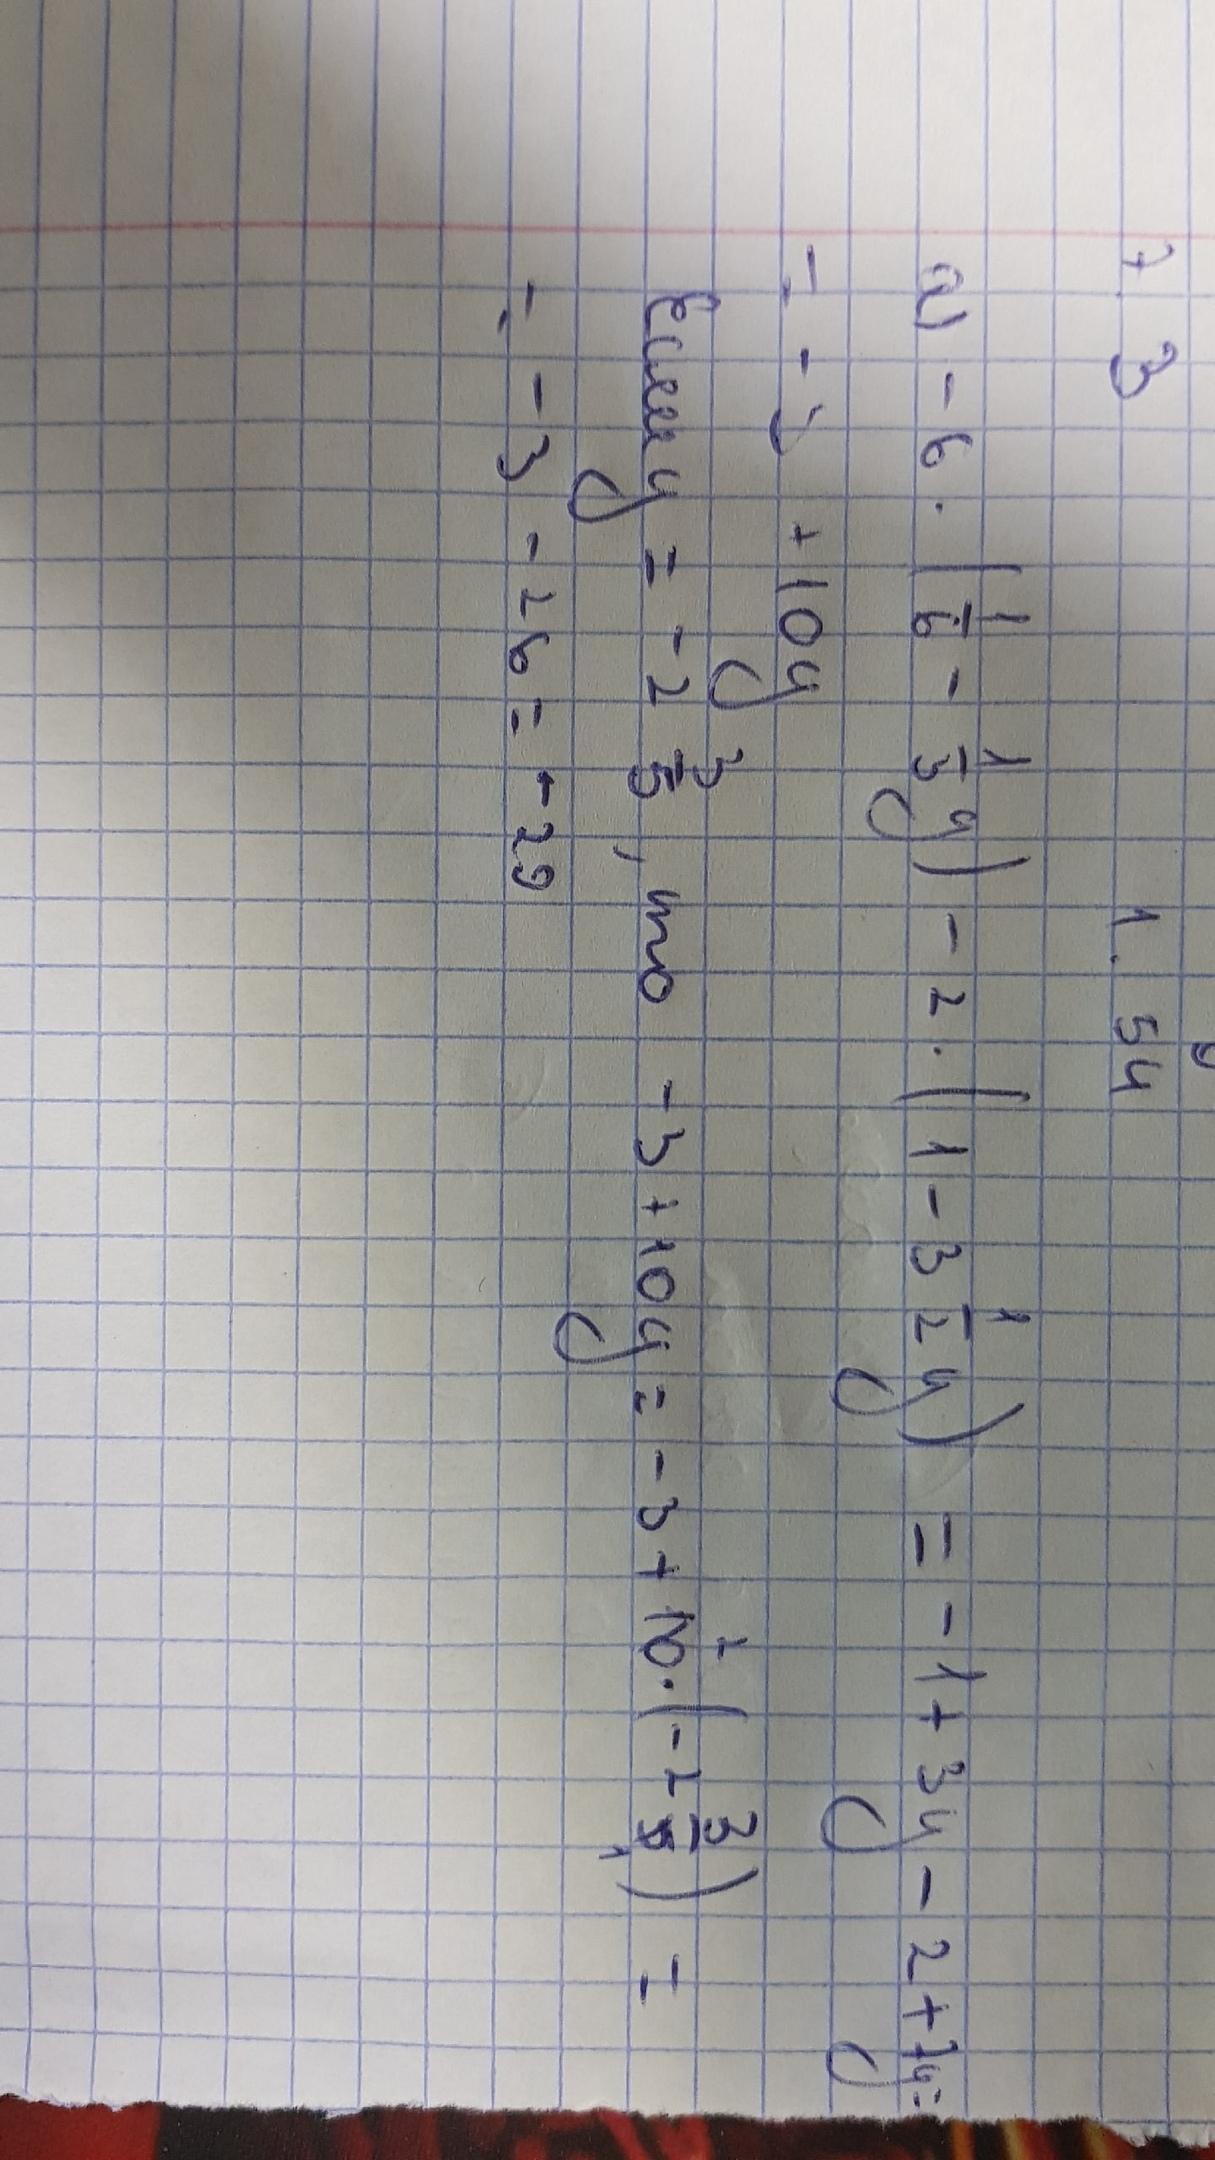 1. 54
7. 3
а) - 6 · (1/6 - 1/3 y) - 2 · (1 - 3 1/2 y) = - 1 + 3y - 2 + 7y =
= - 3 + 10y
Если y = - 2 3/5, то - 3 + 10y = - 3 + 10 · (- 2 3/5) =
= - 3 - 26 = - 29